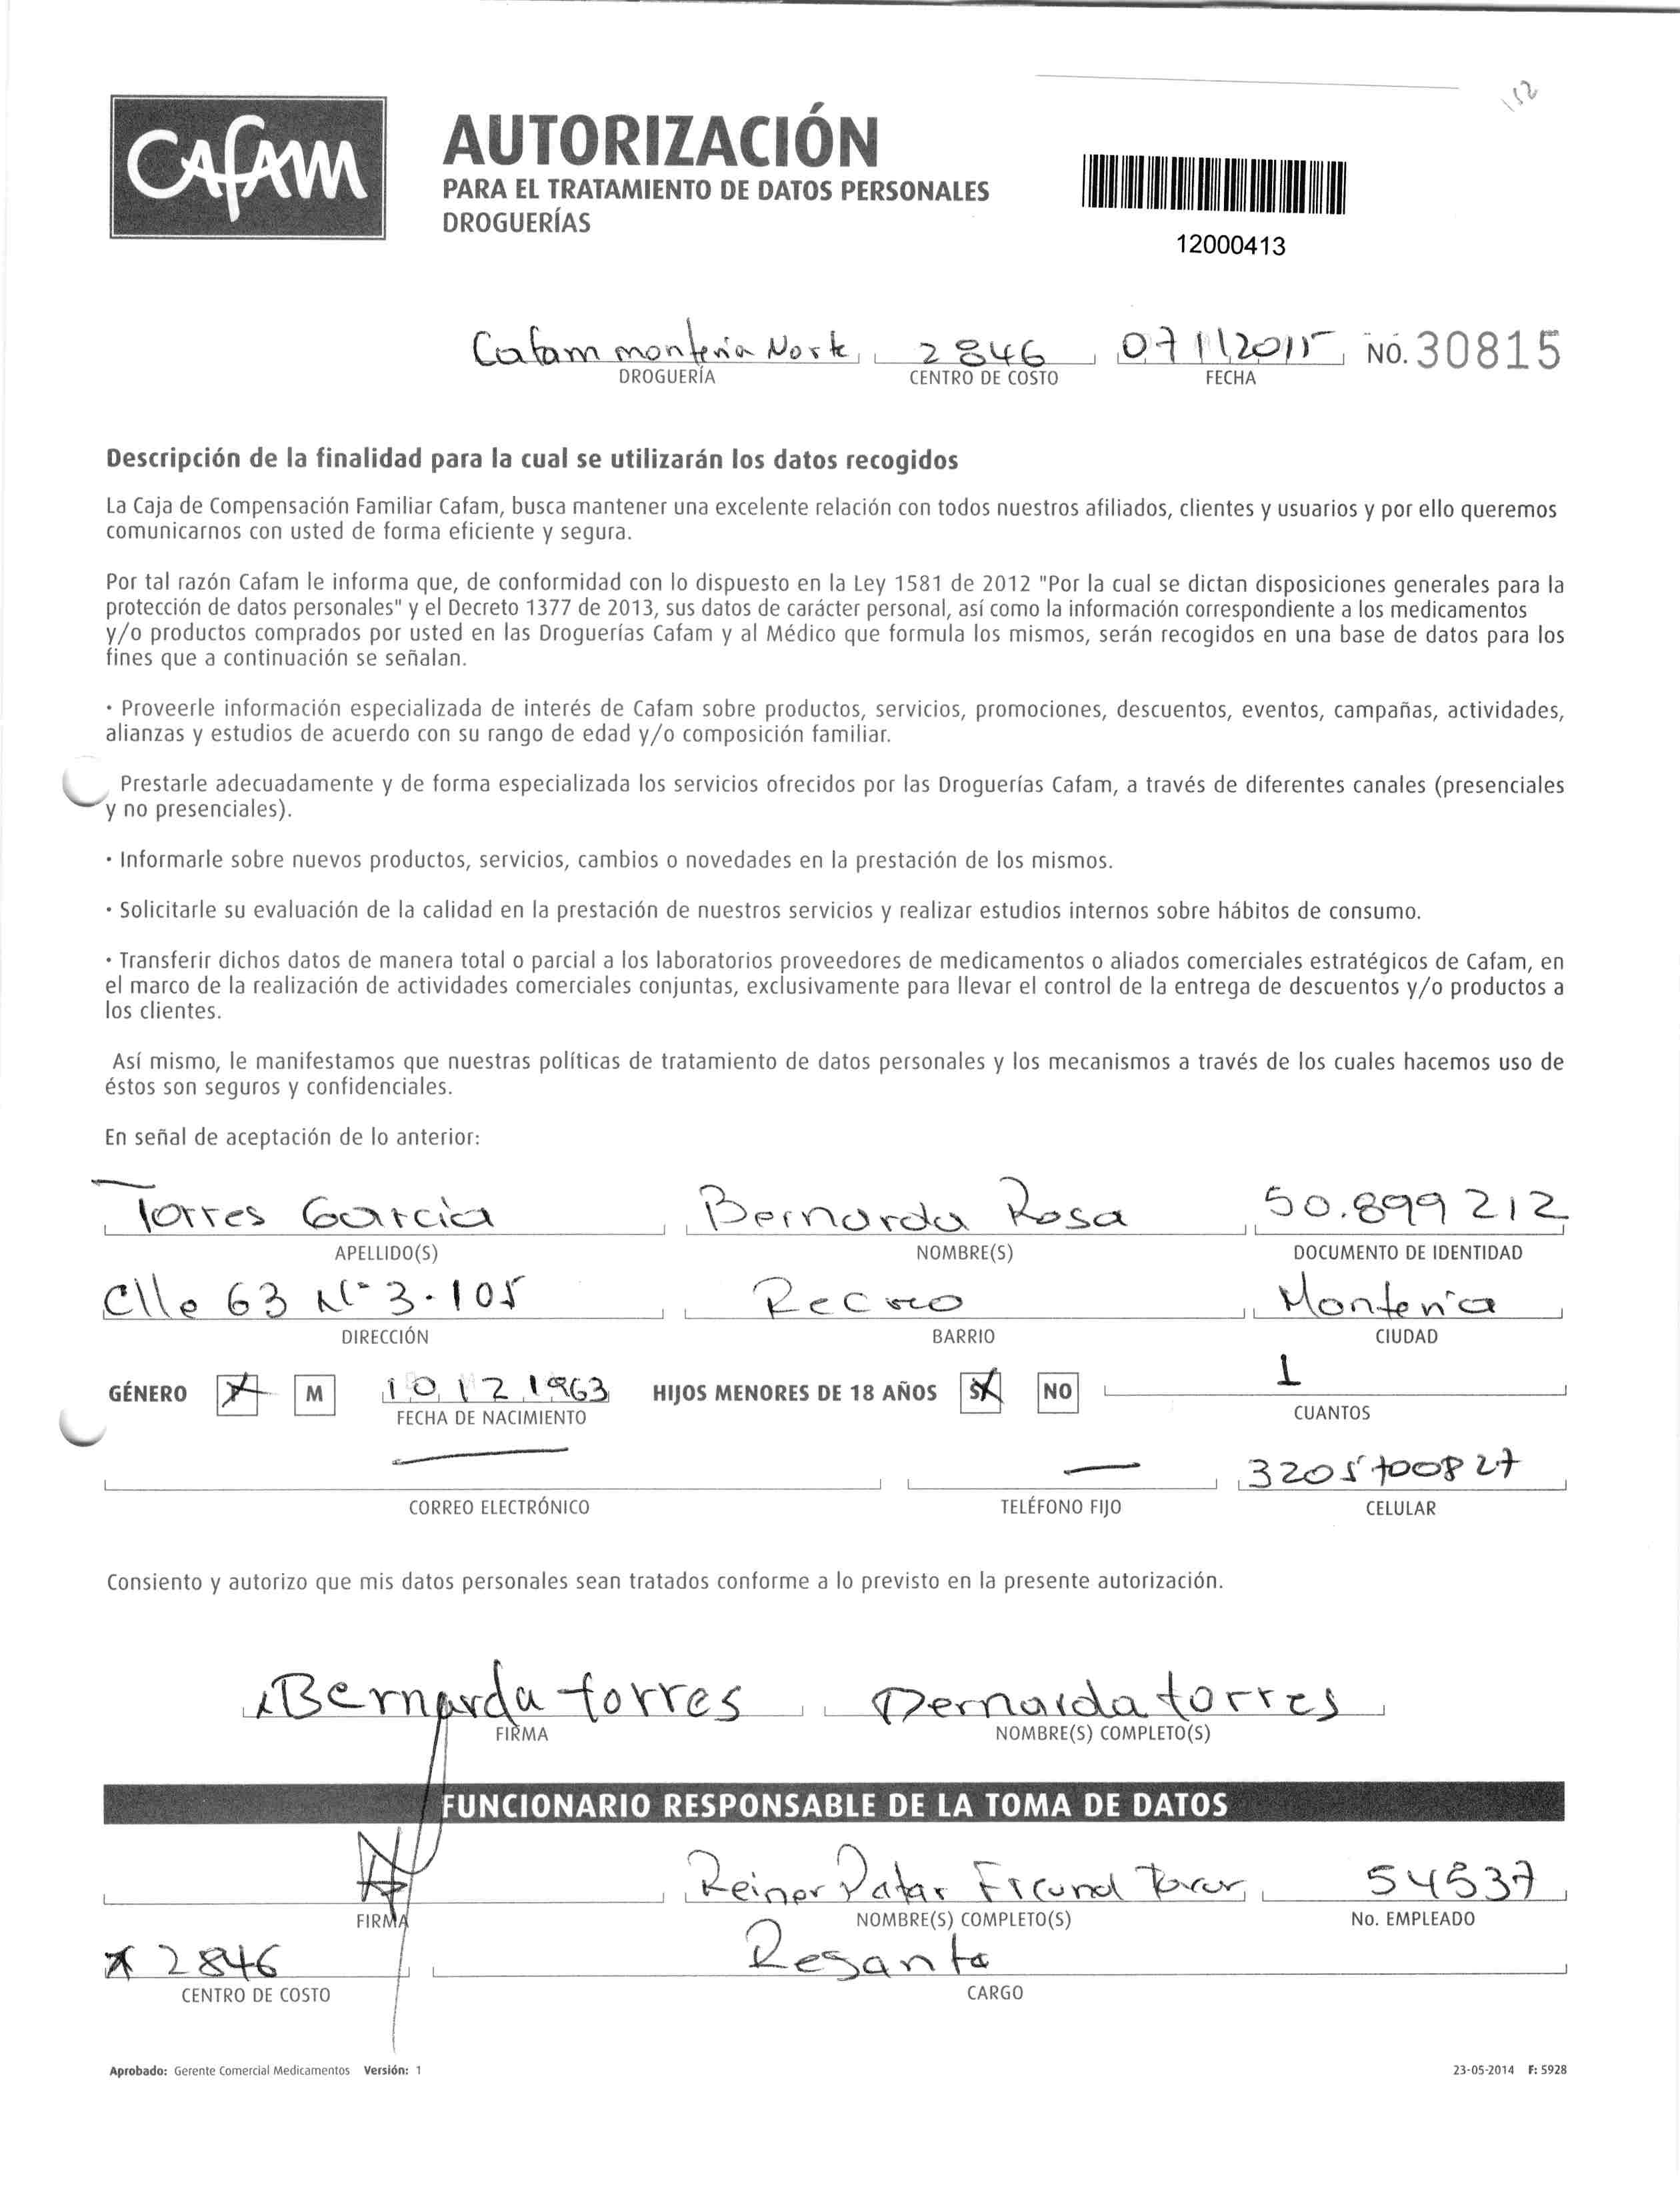 152
CAFAM
AUTORIZACIÓN
PARA EL TRATAMIENTO DE DATOS PERSONALES
DROGUERÍAS
12000413
Cafam monteria Norte 2846 07 11 2015 NO. 30815
DROGUERÍA CENTRO DE COSTO FECHA
Descripción de la finalidad para la cual se utilizarán los datos recogidos
La Caja de Compensación Familiar Cafam, busca mantener una excelente relación con todos nuestros afiliados, clientes y usuarios y por ello queremos
comunicarnos con usted de forma eficiente y segura.
Por tal razón Cafam le informa que, de conformidad con lo dispuesto en la Ley 1581 de 2012 "Por la cual se dictan disposiciones generales para la
protección de datos personales" y el Decreto 1377 de 2013, sus datos de carácter personal, así como la información correspondiente a los medicamentos
y/o productos comprados por usted en las Droguerías Cafam y al Médico que formula los mismos, serán recogidos en una base de datos para los
fines que a continuación se señalan.
· Proveerle información especializada de interés de Cafam sobre productos, servicios, promociones, descuentos, eventos, campañas, actividades,
alianzas y estudios de acuerdo con su rango de edad y/o composición familiar.
Prestarle adecuadamente y de forma especializada los servicios ofrecidos por las Droguerías Cafam, a través de diferentes canales (presenciales
y no presenciales).
· Informarle sobre nuevos productos, servicios, cambios o novedades en la prestación de los mismos.
· Solicitarle su evaluación de la calidad en la prestación de nuestros servicios y realizar estudios internos sobre hábitos de consumo.
· Transferir dichos datos de manera total o parcial a los laboratorios proveedores de medicamentos o aliados comerciales estratégicos de Cafam, en
el marco de la realización de actividades comerciales conjuntas, exclusivamente para llevar el control de la entrega de descuentos y/o productos a
los clientes.
Así mismo, le manifestamos que nuestras políticas de tratamiento de datos personales y los mecanismos a través de los cuales hacemos uso de
éstos son seguros y confidenciales.
En señal de aceptación de lo anterior:
Torres Garcia Bernarda Rosa 50.899 212
APELLIDO(S) NOMBRE(S) DOCUMENTO DE IDENTIDAD
Clle 63 Nº 3-105 Recreo Monteria
DIRECCIÓN BARRIO CIUDAD
GÉNERO X M 10 12 1963 HIJOS MENORES DE 18 AÑOS SI X NO 1
FECHA DE NACIMIENTO CUANTOS
— — 3205700827
CORREO ELECTRÓNICO TELÉFONO FIJO CELULAR
Consiento y autorizo que mis datos personales sean tratados conforme a lo previsto en la presente autorización.
x Bernarda torres Bernarda torres
FIRMA NOMBRE(S) COMPLETO(S)
FUNCIONARIO RESPONSABLE DE LA TOMA DE DATOS
Reiner 54537
FIRMA NOMBRE(S) COMPLETO(S) No. EMPLEADO
2846 Regante
CENTRO DE COSTO CARGO
Aprobado: Gerente Comercial Medicamentos Versión: 1 23-05-2014 F: 5928